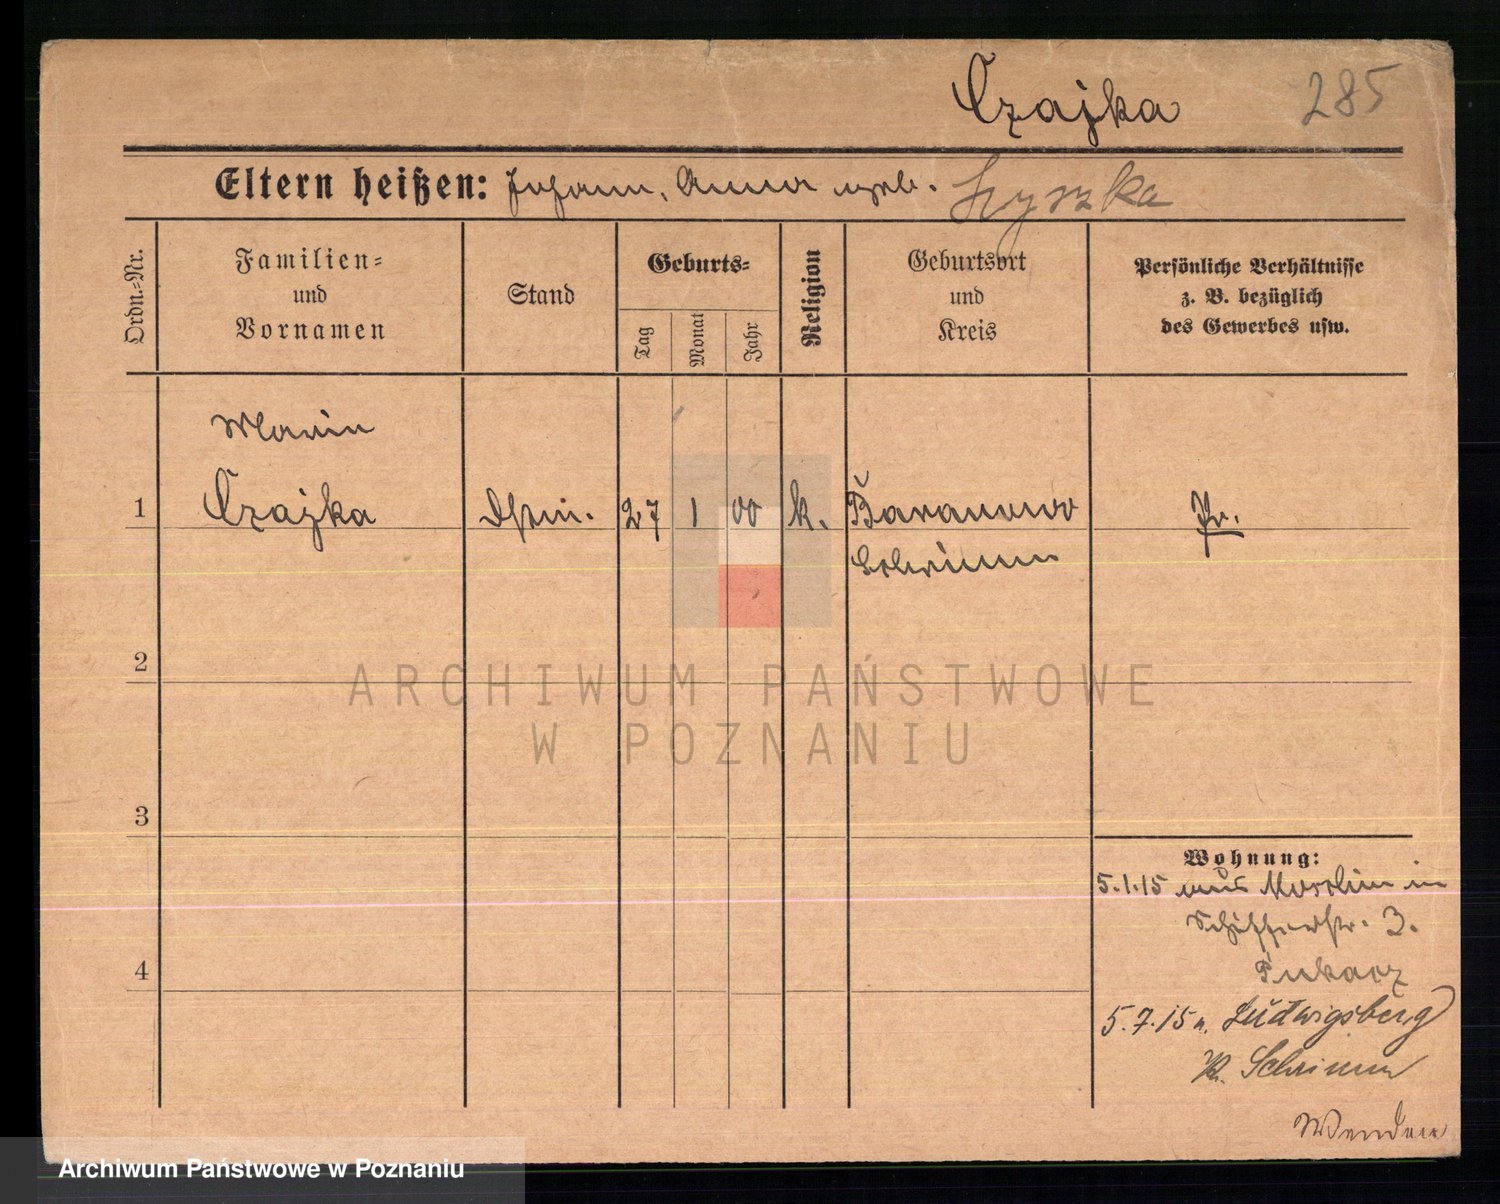 Czajka 285
Eltern heißen: Johann, Anna geb. Lyszka
Ordn.-Nr.
Familien-
und
Vornamen
Stand
Geburts-
Tag
Monat
Jahr
Religion
Geburtsort
und
Kreis
Persönliche Verhältnisse
z. B. bezüglich
des Gewerbes usw.
Marie
1 Czajka Dstm. 27 1 00 k. Baranowo Pr.
Schrimm
2
ARCHIWUM PAŃSTWOWE
W POZNANIU
3
Wohnung:
5.1.15 aus Moschin in
Schifferstr. 3.
4
5.7.15 n. Ludwigsberg
Kr. Schrimm
Archiwum Państwowe w Poznaniu